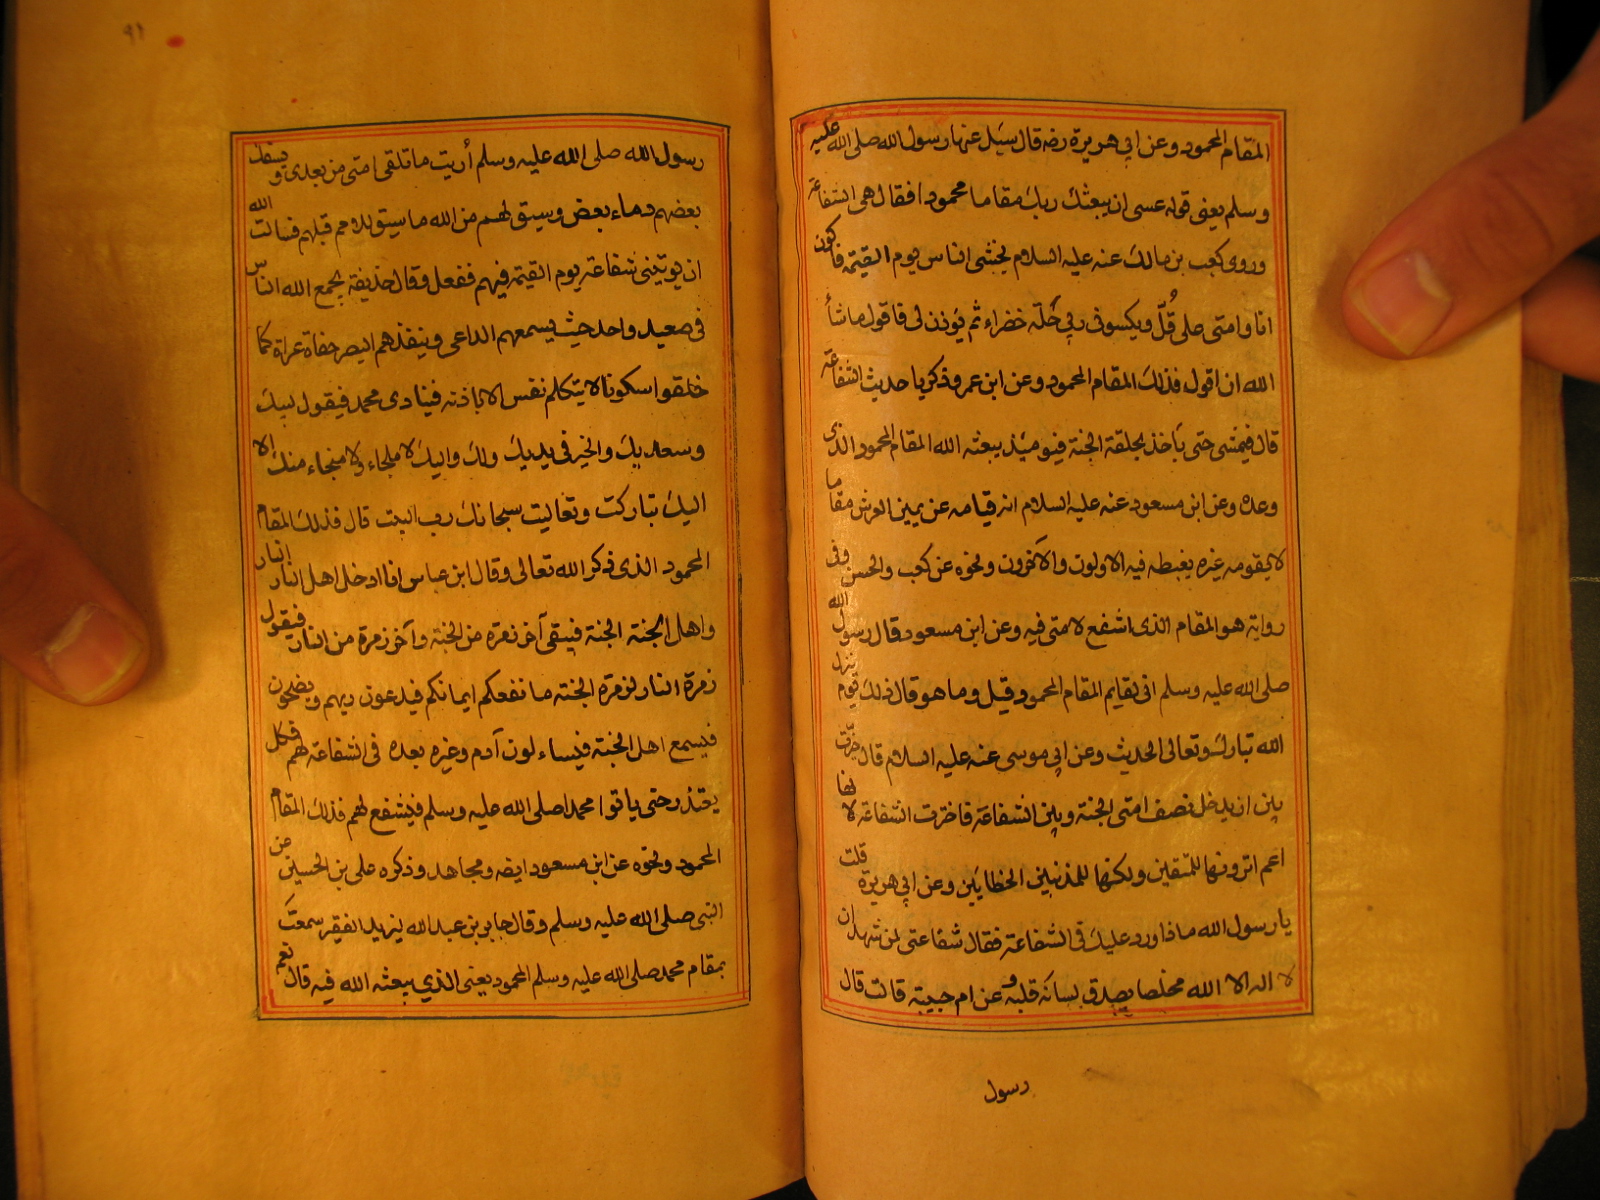 المقام المحمود وعن ابي هريرة رضه قال سئل عنها رسول الله صلى الله عليه
وسلم يعنى قوله عسى ان يبعثك ربك مقاما محمودا فقال هى الشفاعة
وروى كعب بن مالك عنه عليه السلام يحشى الناس يوم القيمة فاكون
انا وامتى على تل ويكسونى ربي حلة خضراء ثم يؤذن لى فاقول ماشاء
الله ان اقول فذلك المقام المحمود وعن ابن عمر وذكر يا حديث الشفاعة
قال فيمشى حتى يأخذ بحلقة الجنة فيومئذ يبعثه الله المقام المحمود الذى
وعده وعن ابن مسعود عنه عليه السلام انه قيامه عن يمين العرش مقاما
لا يقومه غيره يغبطه فيه الاولون والآخرون ونحوه عن كعب والحسن وفى
رواية هو المقام الذى اشفع لامتى فيه وعن ابن مسعود قال رسول الله
صلى الله عليه وسلم انى لقايم المقام المحمود قيل وما هو قال ذلك يوم ينزل
الله تبارك وتعالى الحديث وعن ابي موسى عنه عليه السلام قال خيرت
بين ان يدخل نصف امتى الجنة وبين الشفاعة فاخترت الشفاعة لانها
اعم اترونها للمتقين ولكنها للمذنبين الخطايين وعن ابي هريرة قلت
يا رسول الله ماذا ورد عليك فى الشفاعة فقال شفاعتى لمن شهد ان
لا اله الا الله مخلصا يصدق لسانه قلبه وعن ام حبيبة قالت قال
رسول
٩١
رسول الله صلى الله عليه وسلم أريت ما تلقى امتى من بعدى وسفك
بعضهم دماء بعض وسبق لهم من الله ما سبق للامم قبلهم فسالت الله
ان يوتينى شفاعة يوم القيمة فيهم ففعل وقال حذيفة يجمع الله الناس
فى صعيد واحد حيث يسمعهم الداعى وينفذهم البصر حفاة عراة كما
خلقوا سكوتا لا يتكلم نفس الا باذنه فينادى محمد فيقول لبيك
وسعديك والخير فى يديك ولك واليك لا ملجاء ولا منجاء منك الا
اليك تباركت وتعاليت سبحانك رب البيت قال فذلك المقام
المحمود الذى ذكر الله تعالى وقال ابن عباس اذا ادخل اهل النار النار
واهل الجنة الجنة فيبقى آخر زمرة من الجنة وآخر زمرة من النار فيقول
زمرة النار لزمرة الجنة ما نفعكم ايمانكم فيدعون ربهم ويضجون
فيسمع اهل الجنة فيساءلون آدم وغيره بعده فى الشفاعة لهم فكل
يعتذر حتى ياتوا محمدا صلى الله عليه وسلم فيشفع لهم فذلك المقام
المحمود ونحوه عن ابن مسعود ايضه ومجاهد وذكره على بن الحسين عن
النبى صلى الله عليه وسلم وقال جابر بن عبد الله ليزيد الفقير سمعت
بمقام محمد صلى الله عليه وسلم المحمود يعنى الذي يبعثه الله فيه قال نعم